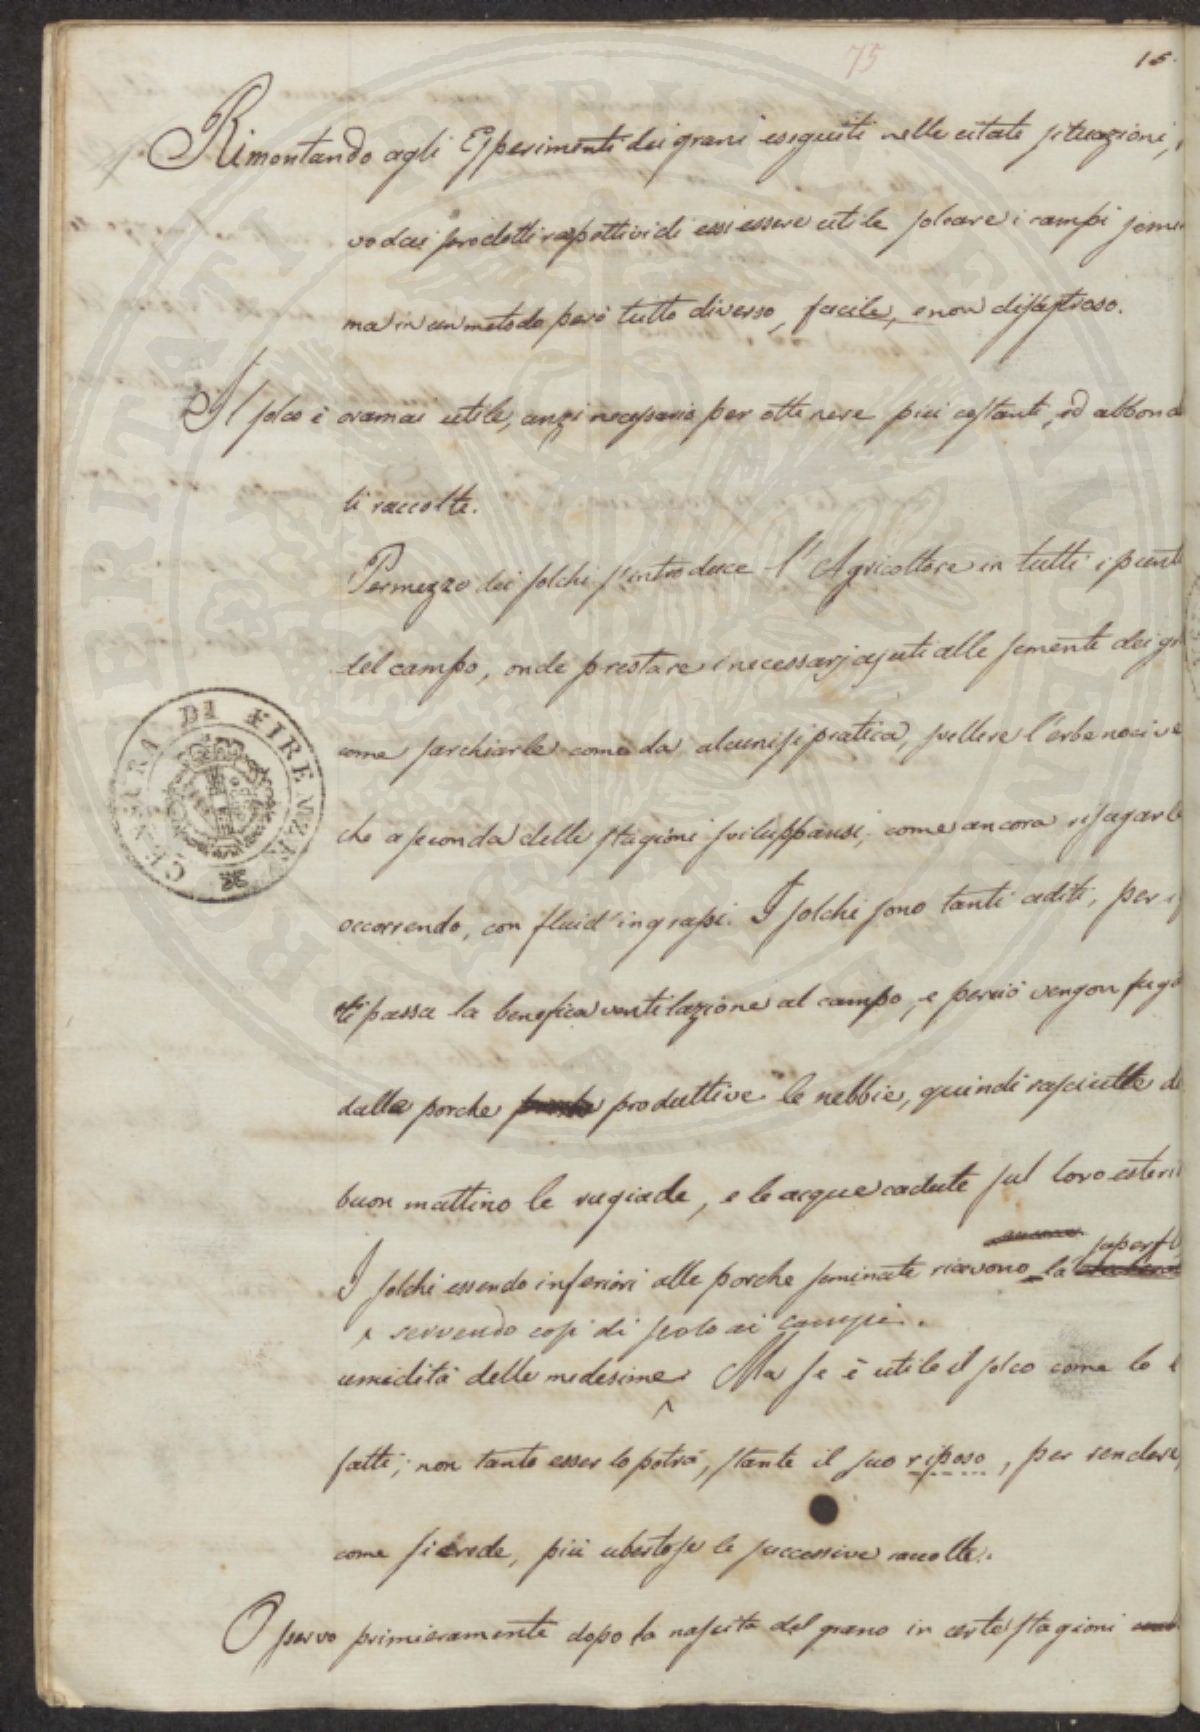 75
15.
Rimontando agli Esperimenti dei grani eseguiti nelle citate situazioni,
vo dai prodotti respettivi di essi essere utile solcare i campi
ma in un metodo però tutto diverso, facile, e non disastroso.
Il solco è oramai utile, anzi necessario per ottenere più costanti, ed abbonda
ti raccolte.
Per mezzo dei solchi s'introduce l'Agricoltore in tutti i punti
del campo, onde prestare i necessarj ajuti alle sementi dei
come sarchiarle come da alcuni si pratica, svellere l'erbe nocive
che a seconda delle stagioni sviluppansi; come ancora
occorrendo, con fluid' ingrassi. I solchi sono tanti aditi, per
ti passa la benefica ventilazione al campo, e perciò vengon fuga
dalle porche produttive le nebbie, quindi rasciutte di
buon mattino le rugiade, e le acque cadute sul loro
superfl
I solchi essendo inferiori alle porche seminate ricevono la
^ servendo così di scolo ai campi.
umidità delle medesime. Ma se è utile il solco come lo è
fatti; non tanto esser lo potrà, stante il suo riposo, per rendere,
come si crede, più ubertose le successive raccolte.
Osservo primieramente dopo la nascita del grano in certe stagioni
CENSURA DI FIRENZE